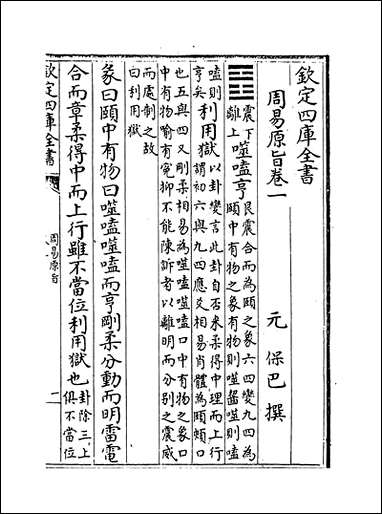 欽定四庫全書
周易原旨卷一
元 保巴 撰
震下
離上
噬嗑亨
艮震合而為頤之象六四變九四為
頤中有物之象有物則噬齧則嗑
嗑則
亨矣
利用獄
以卦變言此卦自否来柔得中理而上行
謂初六與九四應爻相易肖體為頤頰口
也五與四又剛柔相易為噬噬嗑口中有物之象口
中有物喻有寃抑不能陳訴者以離明而分别之震威
而處制之故
曰利用獄
彖曰頤中有物曰噬嗑噬嗑而亨剛柔分動而明雷電
合而章柔得中而上行雖不當位利用獄也
卦除三上
俱不當位
欽定四庫全書
周易原旨